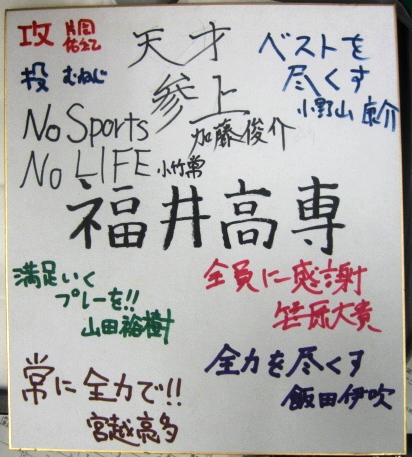 攻
投 むねじ
天才
参上
加藤俊介
ベストを
尽くす
小野山 康介
No Sports
No LIFE 小竹
福井高専
満足いく
プレーを!!
山田裕樹
全員に感謝
笹原大貴
常に全力で!!
宮越高多
全力を尽くす
飯田伊吹